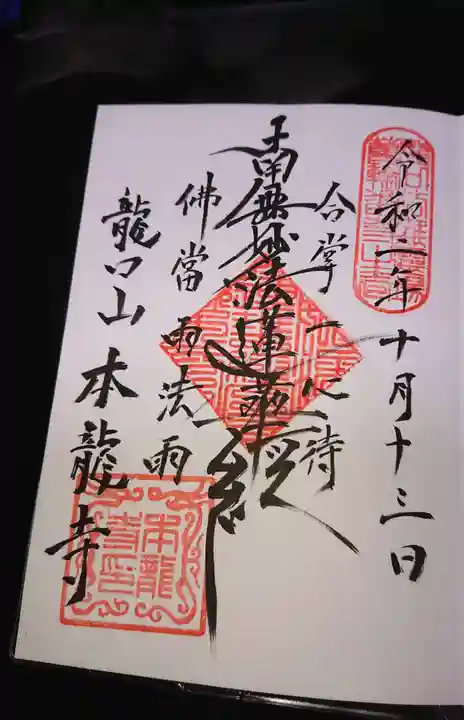 令和二年十月十三日
合掌一心待
南無妙法蓮華経
佛當雨法雨
龍口山本龍寺
本龍寺印